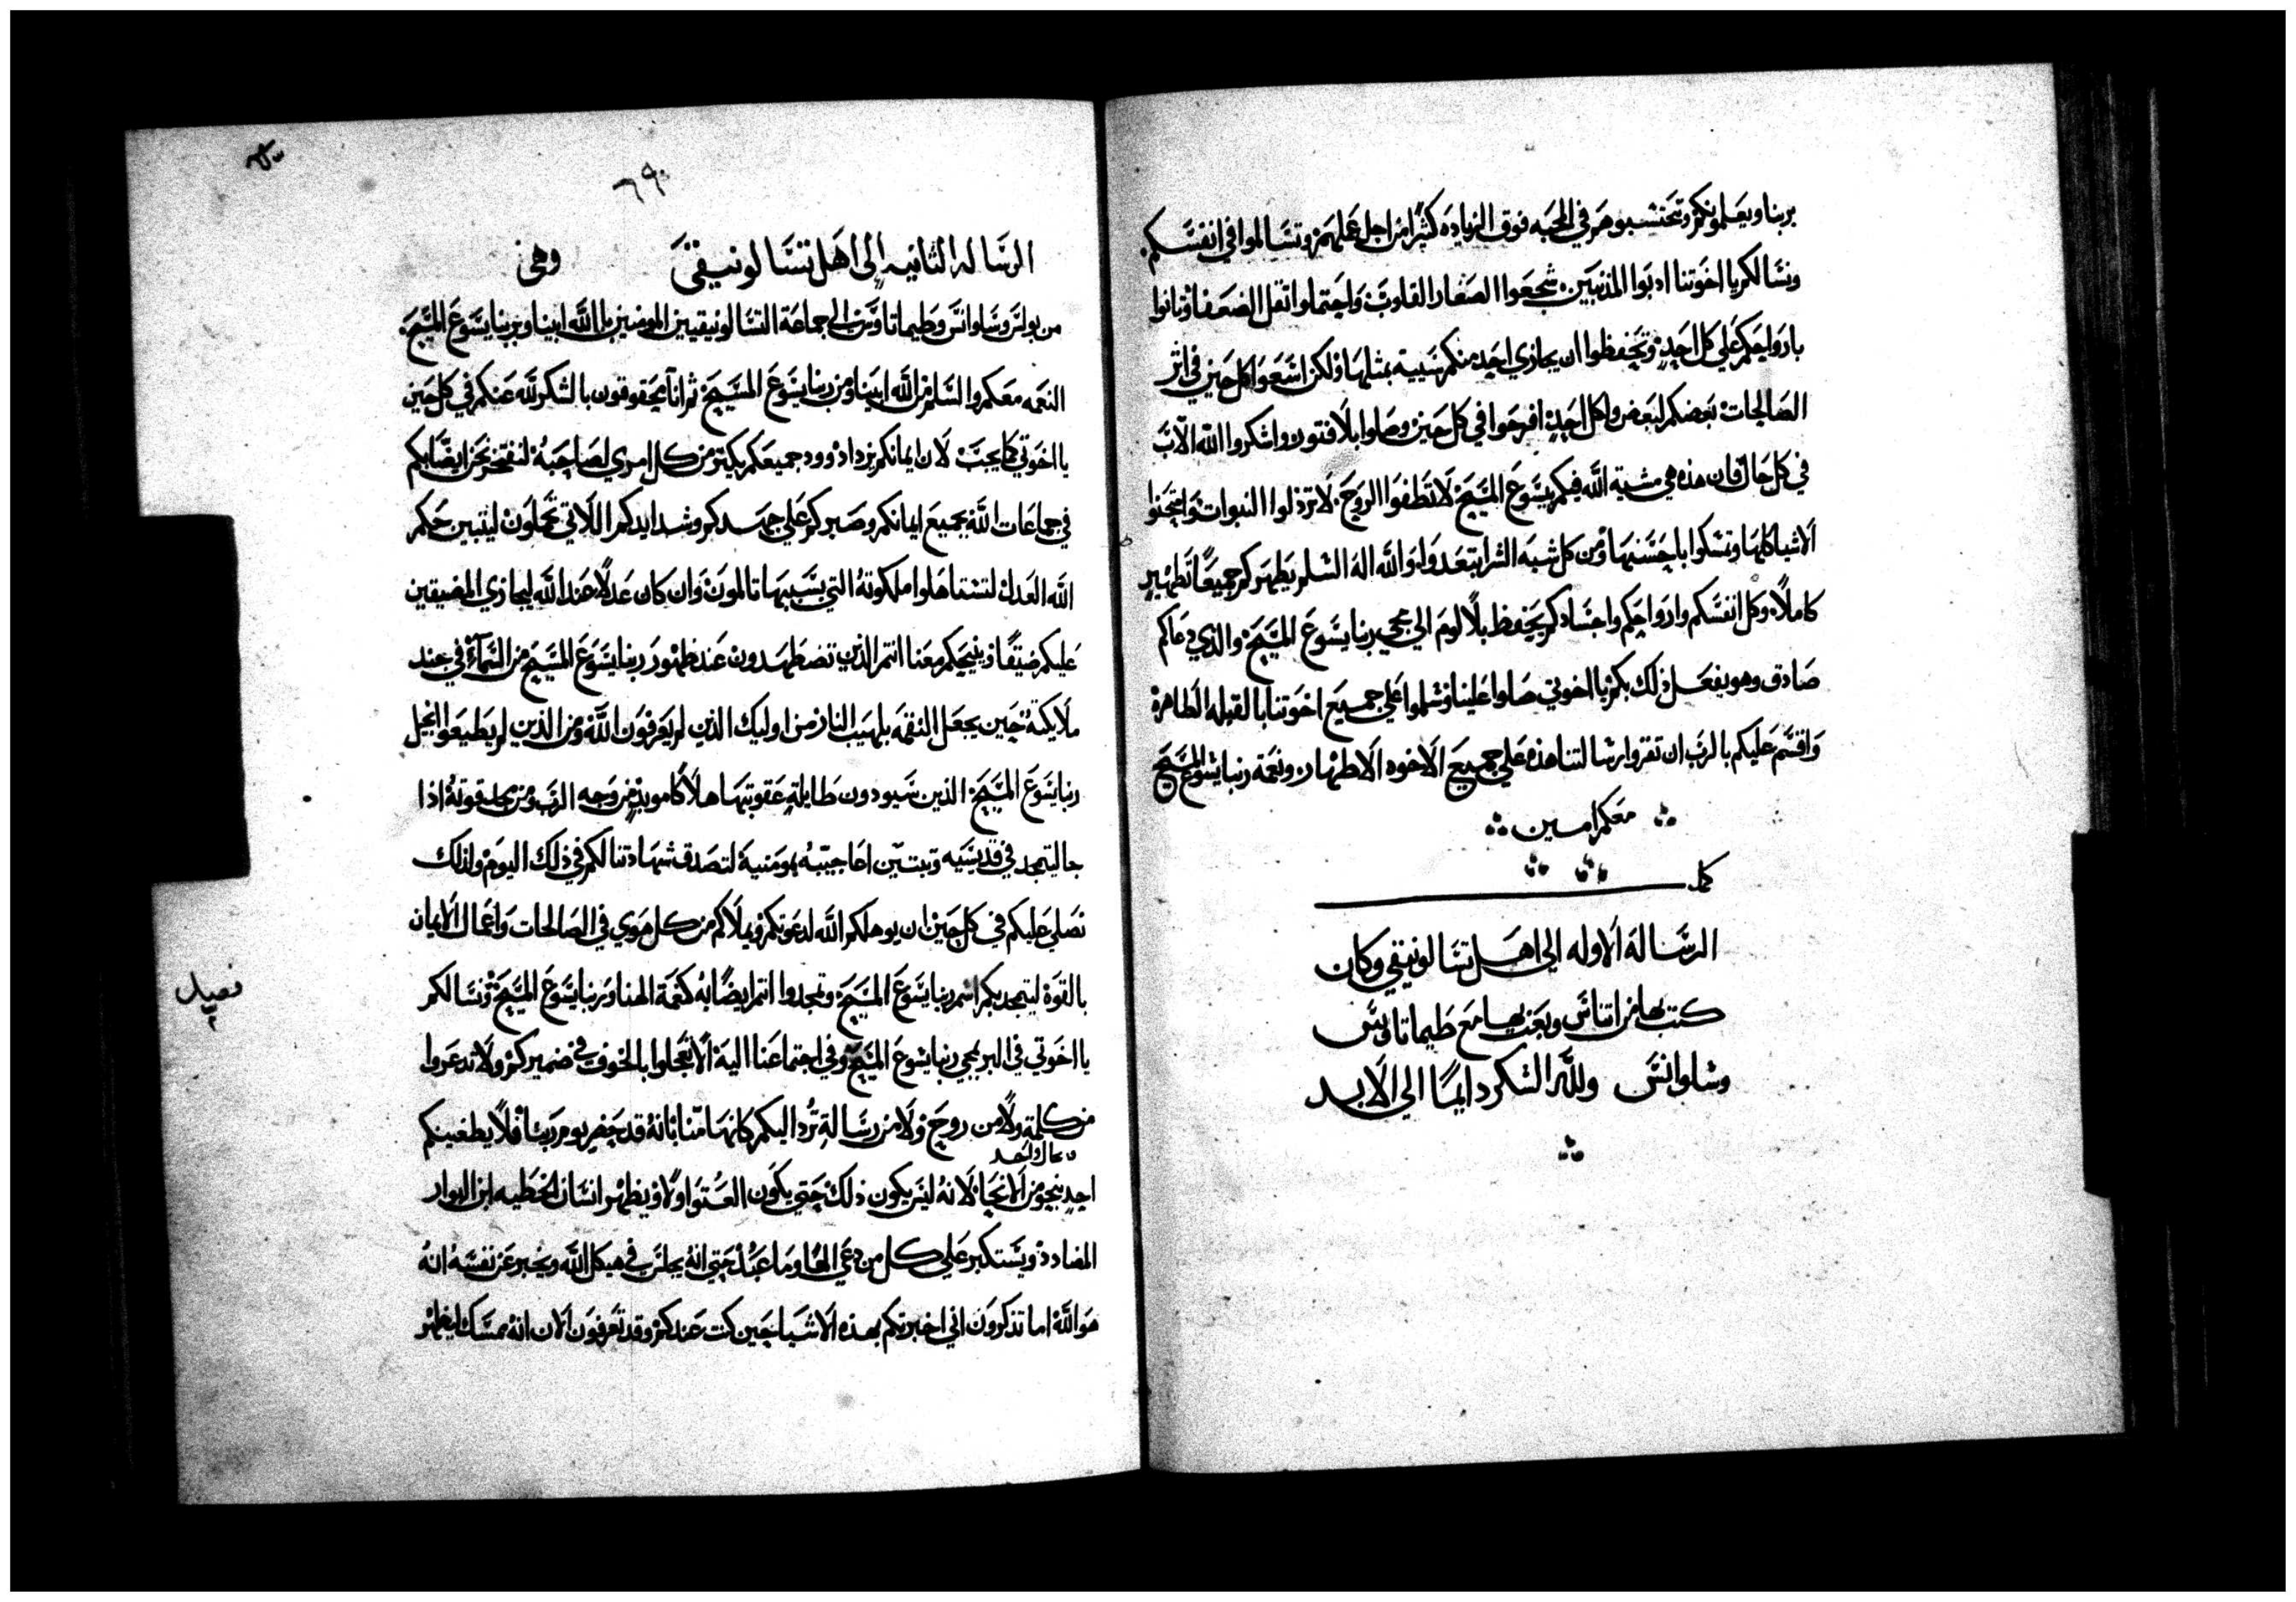 بربنا ويعلمونكم وتحتسبوهم في المحبه فوق الزياده كثيرا من اجل عملهم وتسالموا في انفسكم
ونسالكم يا اخوتنا ادبوا المذنبين شجعوا الصغار القلوب واحتملوا ثقل الضعفا وتانوا
بارواحكم على كل احد وتحفظوا ان يجازي احد منكم سييه بمثلها ولكن اسعوا كل حين في اثر
الصالحات بعضكم لبعض ولكل احد افرحوا في كل حين وصلوا بلا فتور واشكروا الله الاب
في كل حال فان هذه هي مشية الله فيكم بيسوع المسيح لا تطفوا الروح لا ترذلوا النبوات وامتحنوا
الاشيا كلها وتمسكوا باحسنها ومن كل شبه الشر ابتعدوا والله اله السلم يطهركم جميعا تطهير
كاملا وكل انفسكم وارواحكم واجسادكم يحفظ بلا لوم الى مجي ربنا يسوع المسيح والذي دعاكم
صادق وهو يفعل ذلك بكم يا اخوتي صلوا علينا وسلموا على جميع اخوتنا بالقبله الطاهره
واقسم عليكم بالرب ان تقروا رسالتنا هذه على جميع الاخوه الاطهار ونعمة ربنا يسوع المسيح
معكم امين
كمل
الرساله الاوله الى اهل تسالونيقي وكان
كتب بها من اتناس وبعث بها مع طيماتاوس
وسلوانس ولله الشكر دايما الى الابد
٦٩٠
الرساله الثانيه الى اهل تسالونيقي وهي
من بولس وسلوانس وطيماتاوس الى جماعة التسالونيقيين المومنين بالله ابينا وبربنا يسوع المسيح
النعمه معكم والسلم من الله ابينا ومن ربنا يسوع المسيح ثم انا محقوقون بالشكر لله عنكم في كل حين
يا اخوتي كما يجب لان ايمانكم يزداد وود جميعكم يكثر من كل امري لصاحبه لنفتخر نحن ايضا بكم
في جماعات الله بجميع ايمانكم وصبركم على جهدكم وشدايدكم اللاتي تحملون ليتبين حكم
الله العدل لتستاهلوا ملكوته التي بسببها تالمون وان كان عدلا عند الله ليجازي المضيقين
عليكم ضيقا وينجيكم معنا انتم الذين تضطهدون عند ظهور ربنا يسوع المسيح من السماء في جند
ملايكته حين يجعل النقمه بلهيب النار من اوليك الذين لم يعرفون الله ومن الذين لم يطيعوا انجيل
ربنا يسوع المسيح الذين سيودون طايلة عقوبتها هلاكا موبد من وجه الرب ومن مجد قوته اذا
جا ليتمجد في قديسيه وتبتين اعاجيبه بمومنية لتصدق شهادتنا لكم في ذلك اليوم ولذلك
نصلي عليكم في كل حين ان يوهلكم الله لدعوتكم ويملاكم من كل هوي في الصالحات واعمال الايمان
بالقوة ليتمجد بكم اسم ربنا يسوع المسيح وتمجدوا انتم ايضا به كنعمة الهنا وربنا يسوع المسيح ونسالكم
فصل
٢
يا اخوتي في امر مجي ربنا يسوع المسيح وفي اجتماعنا اليه الا تعجلوا بالخوف في ضميركم ولا تدعروا
من كلمة ولا من روح ولا من رسالة ترد اليكم كانها منا بانه قد حضر يوم ربنا فلا يطغينكم
احد بنحو من الانحا لانه ليس يكون ذلك حتى يكون العتو اولا ويظهر انسان الخطيه ابن البوار
المضادد ويستكبر على كل من دعي الها وما عبد حتى انه يجلس في هيكل الله ويخبر عن نفسه انه
هو الله اما تذكرون اني اخبرتكم بهذه الاشيا حين كنت عندكم وقد تعرفون الان انه ممسك ليظهر